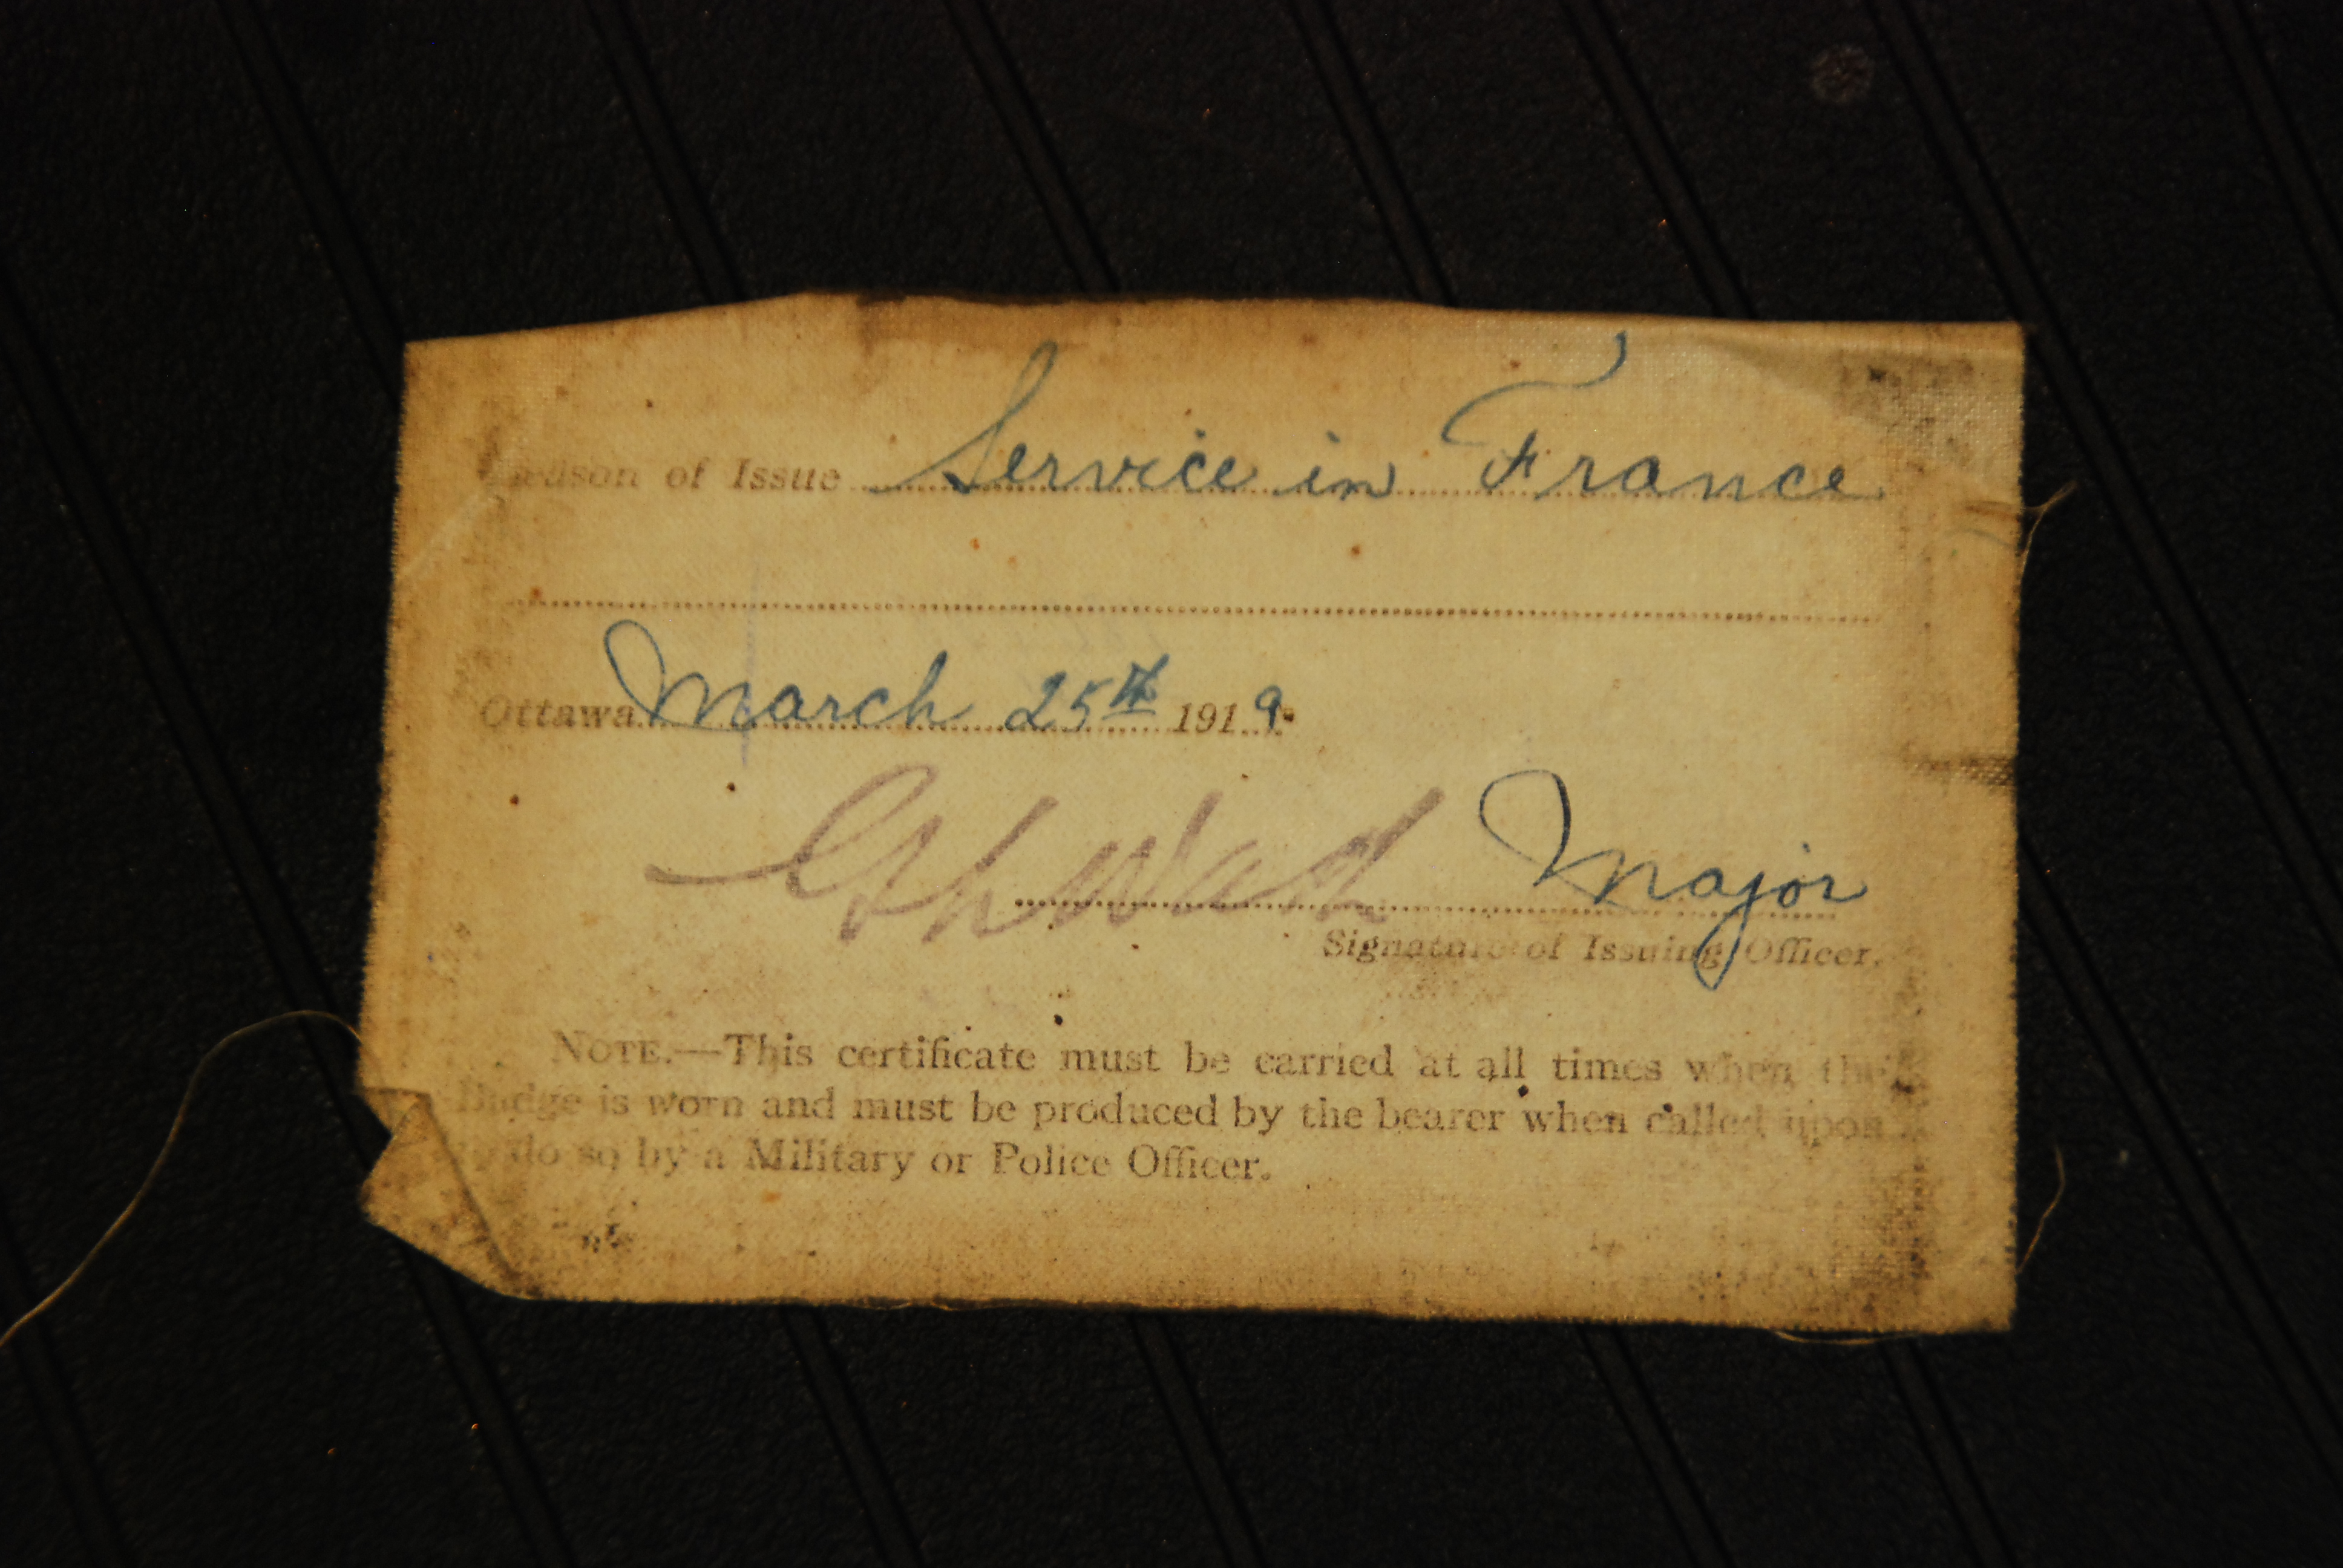 Reason of Issue Service in France
Ottawa March 25th 1919.
Major
Signature of Issuing Officer.
NOTE.—This certificate must be carried at all times when the
Badge is worn and must be produced by the bearer when called upon
to do so by a Military or Police Officer.